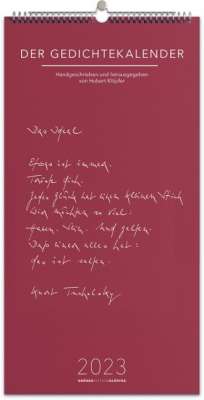 DER GEDICHTEKALENDER
Handgeschrieben und herausgegeben
von Hubert Klöpfer
Das Ideal
Etwas ist immer.
Tröste dich.
Jedes Glück hat einen kleinen Stich
Wir möchten so viel:
Haben. Sein. Und gelten.
Daß einer alles hat:
das ist selten.
Kurt Tucholsky
2023